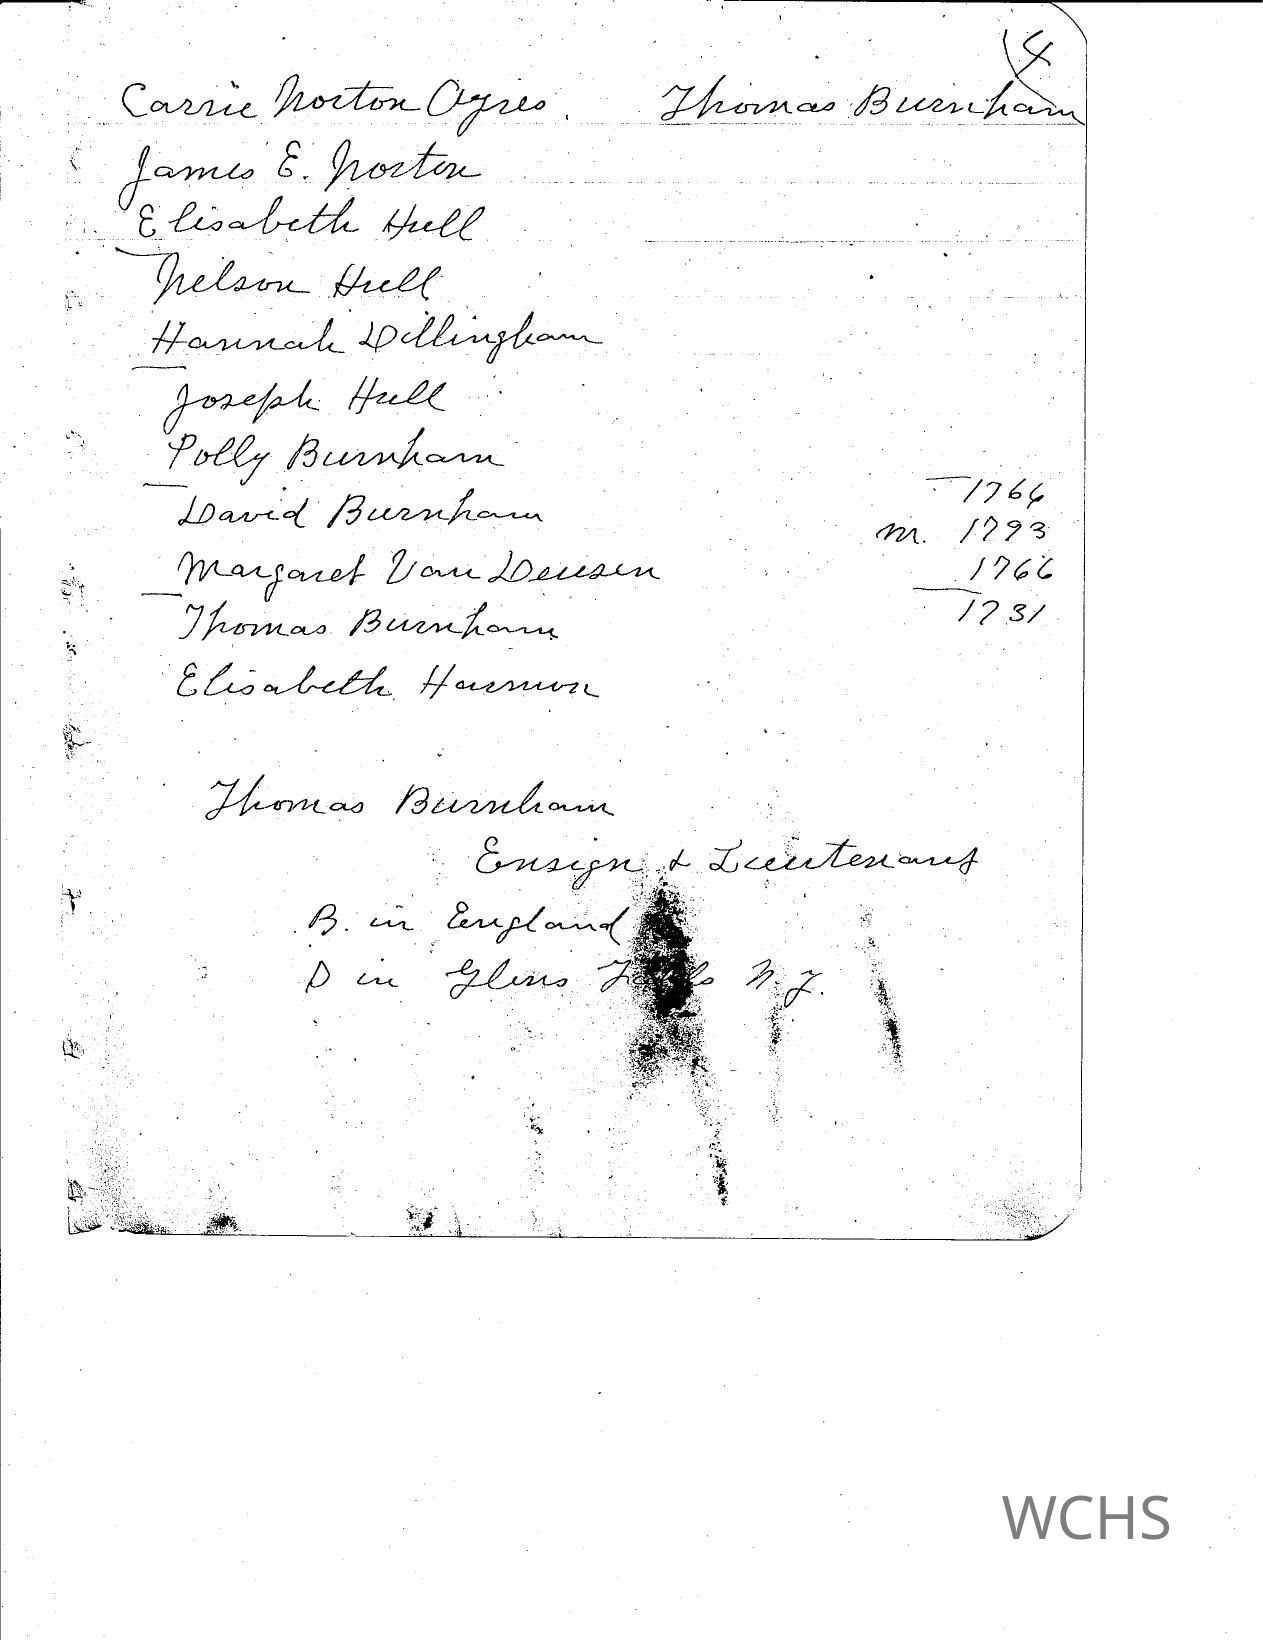 4
Carrie Norton Ayres. Thomas Burnham
James E. Norton
Elisabeth Hull
Nelson Hull
Hannah Dillingham
Joseph Hull
Polly Burnham
1764
David Burnham m. 1793
Margaret Van Deusen 1766
Thomas Burnham 1731
Elisabeth Harmon
Thomas Burnham
Ensign & Lieutenant
B. in England
D in Glens Falls N.Y.
WCHS